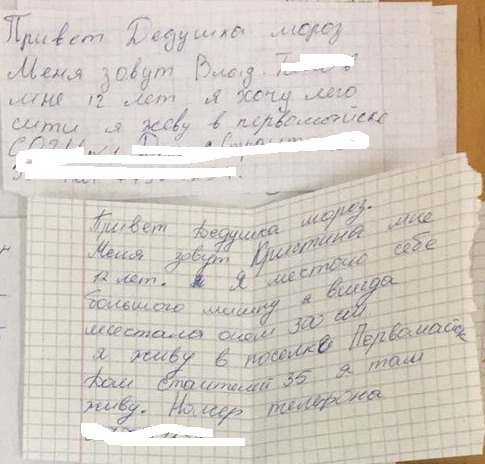 Привет Дедушка мороз
Меня зовут Влад
мне 12 лет я хочу лего
сити я живу в первомайске
Привет Дедушка мороз.
Меня зовут Кристина мне
12 лет. Я местаю себе
большого мишку я всигда
местала о нем 300 см.
я живу в поселке Первомайск
дом 35 я там
живу. Номер телефона